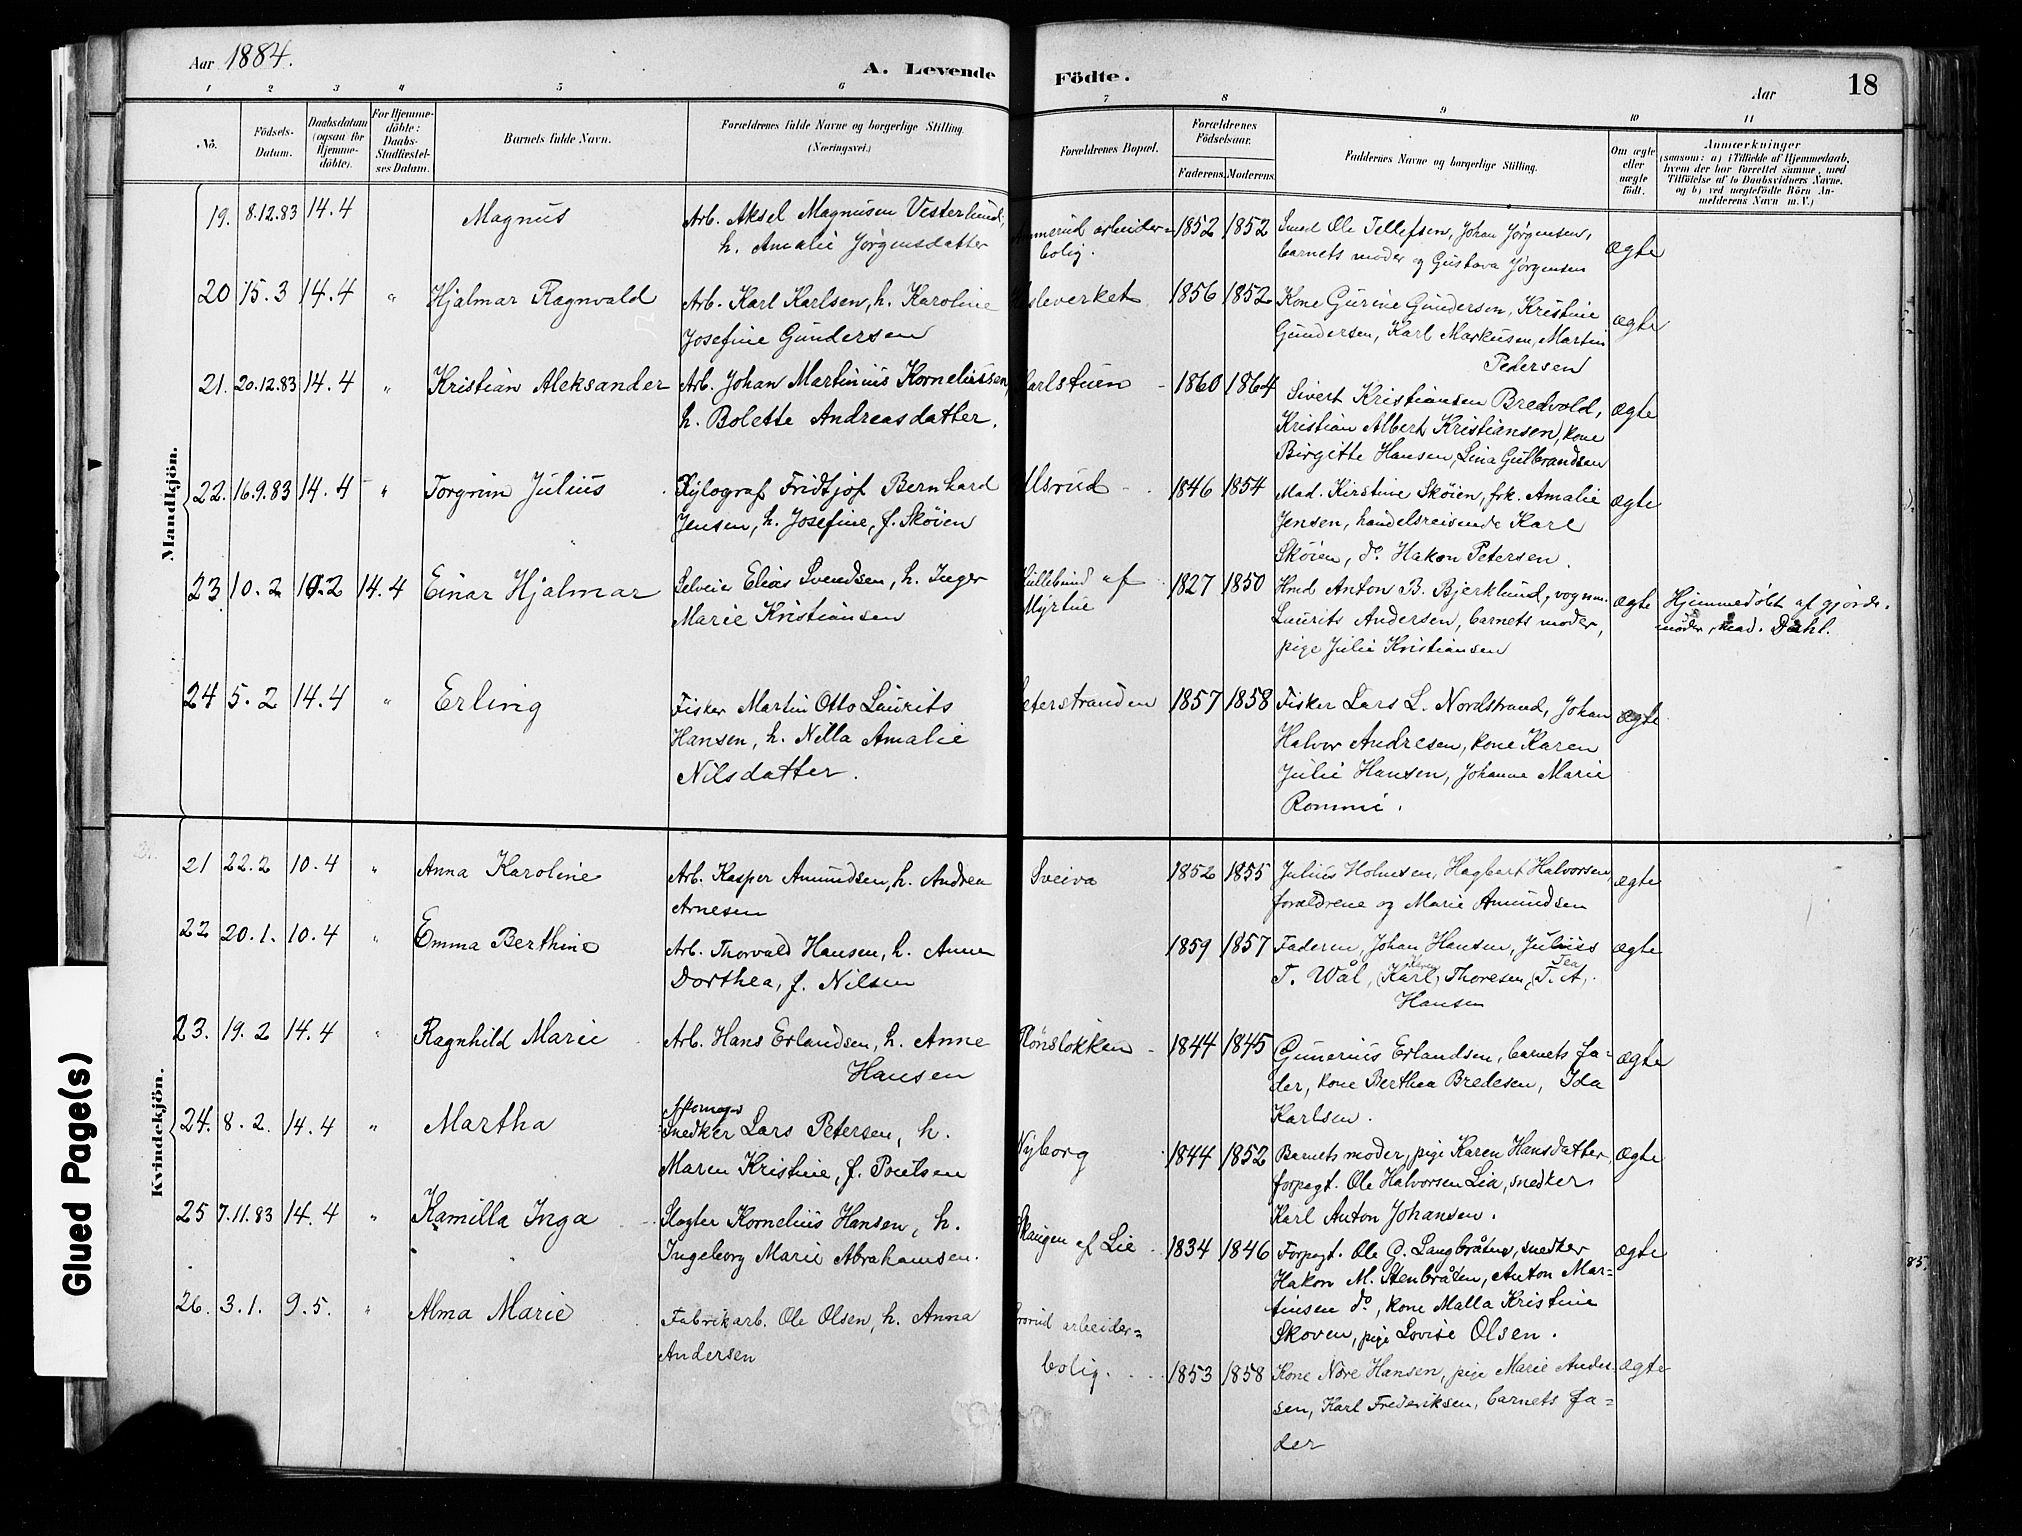 Aar 1884.
A. Levende Födte.
Aar
18
1 2 3 4 5 6 7 8 9 10 11
No.
Födsels-Datum.
Daabsdatum (ogsaa for Hjemme-döbte).
For Hjemme-döbte: Daabs-Stadfæstel-ses Datum.
Barnets fulde Navn.
Forældrenes fulde Navne og borgerlige Stilling.
(Næringsvei.)
Forældrenes Bopæl.
Forældrenes Födselsaar.
Faderens. Moderens.
Faddernes Navne og borgerlige Stilling.
Om ægte eller uægte født.
Anmærkninger
(saasom: a) i Tilfælde af Hjemmedaab,
hvem der har forrettet samme, med
Tilføielse af to Daabsvidners Navne,
og b) ved uægtefödte Börn An-
melderens Navn m. V.)
Mandkjön.
19. 8.12.83 14.4 Magnus Arb. Aksel Magnusen Vesterlund, arbeider= 1852 1852 Smed Ole Tellefsen, Johan Jørgensen, ægte
h. Amalie Jørgensdatter bolig. barnets moder og Gustava Jørgensen
20 15.3 14.4 " Hjalmar Ragnvald Arb. Karl Karlsen, h. Karoline 1856 1852 Kone Gurine Gundersen, Kristine ægte
Josefine Gundersen Gundersen, Karl Markusen, Martin
Pedersen
21. 20.12.83 14.4 " Kristian Aleksander Arb. Johan Martinius Korneliussen, Karlstuen 1860 1864 Sivert Kristiansen Bredvold, ægte
h. Bolette Andreasdatter. Kristian Albert Kristiansen, kone
Birgitte Hansen, Lina Gulbrandsen
22. 16.9.83 14.4 " Torgrim Julius Xylograf Fridtjof Bernhard Ulsrud 1846 1854 Mad. Kirstine Skøien, frk. Amalie ægte
Jensen, h. Josefine, f. Skøien Jensen, handelsreisende Karl
Skøien, do. Hakon Petersen.
23 10.2 10.2 14.4 Einar Hjalmar Selveier Elias Svendsen, h. Inger Lillebund af 1827 1850 Hmd Anton B. Bjerklund, vognm. ægte Hjemmedøbt af gjorde-
Marie Kristiansen Laurits Andersen, barnets moder, moder, mad. Dahl.
pige Julie Kristiansen
24 5.2 14.4 " Erling Fisker Martin Otto Laurits 1857 1858 Fisker Lars L. Nordstrand, Johan ægte
Hansen, h. Nilla Amalie Halvor Andresen, kone Karen
Nilsdatter. Julie Hansen, Johanne Marie
Rommi.
Kvindekjön.
21 22.2 10.4 " Anna Karoline Arb. Kasper Amundsen, h. Andrea Sveiva 1852 1855 Julius Holmsen, Hagbart Halvorsen, ægte
Arnesen forældrene og Marie Amundsen
22 20.1. 10.4 " Emma Berthine Arb. Thorvald Hansen, h. Anne 1859 1857 Faderen, Johan Hansen, Julius ægte
Dorthea, f. Nilsen T. Wål, Karl Karen Thoresen, T. A. Tea
Hansen
23. 19.2 14.4 " Ragnhild Marie Arb. Hans Erlandsen, h. Anne Rønsløkken 1844 1845 Gunerius Erlandsen, barnets fa= ægte
Hansen der, kone Berthea Bredesen, Ida
Karlsen.
24. 8.2. 14.4 " Martha Snedker Lars Petersen, h. Nyborg 1844 1852 Barnets moder, pige Karen Hansdatter, ægte
Maren Kristine, f. Poulsen forpagt. Ole Halvorsen Lia, snedker
Karl Anton Johansen.
25 7.11.83 14.4 " Kamilla Inga Slagter Kornelius Hansen, h. Skaugen af Lie 1834 1846 Forpagt. Ole G. Langbråten, snedker ægte
Ingeborg Marie Abrahamsen. Hakon M. Stenbråten, Anton Mar=
tinsen do, kone Malla Kristine
Skoven, pige Lovise Olsen.
26. 3.1. 9.5. " Alma Marie Fabrikarb. Ole Olsen, h. Anna arbeider= bolig. 1853 1858 Kone Nore Hansen, pige Marie Ander- ægte
Andersen sen, Karl Frederiksen, barnets fa=
der
85.
Glued Page(s)